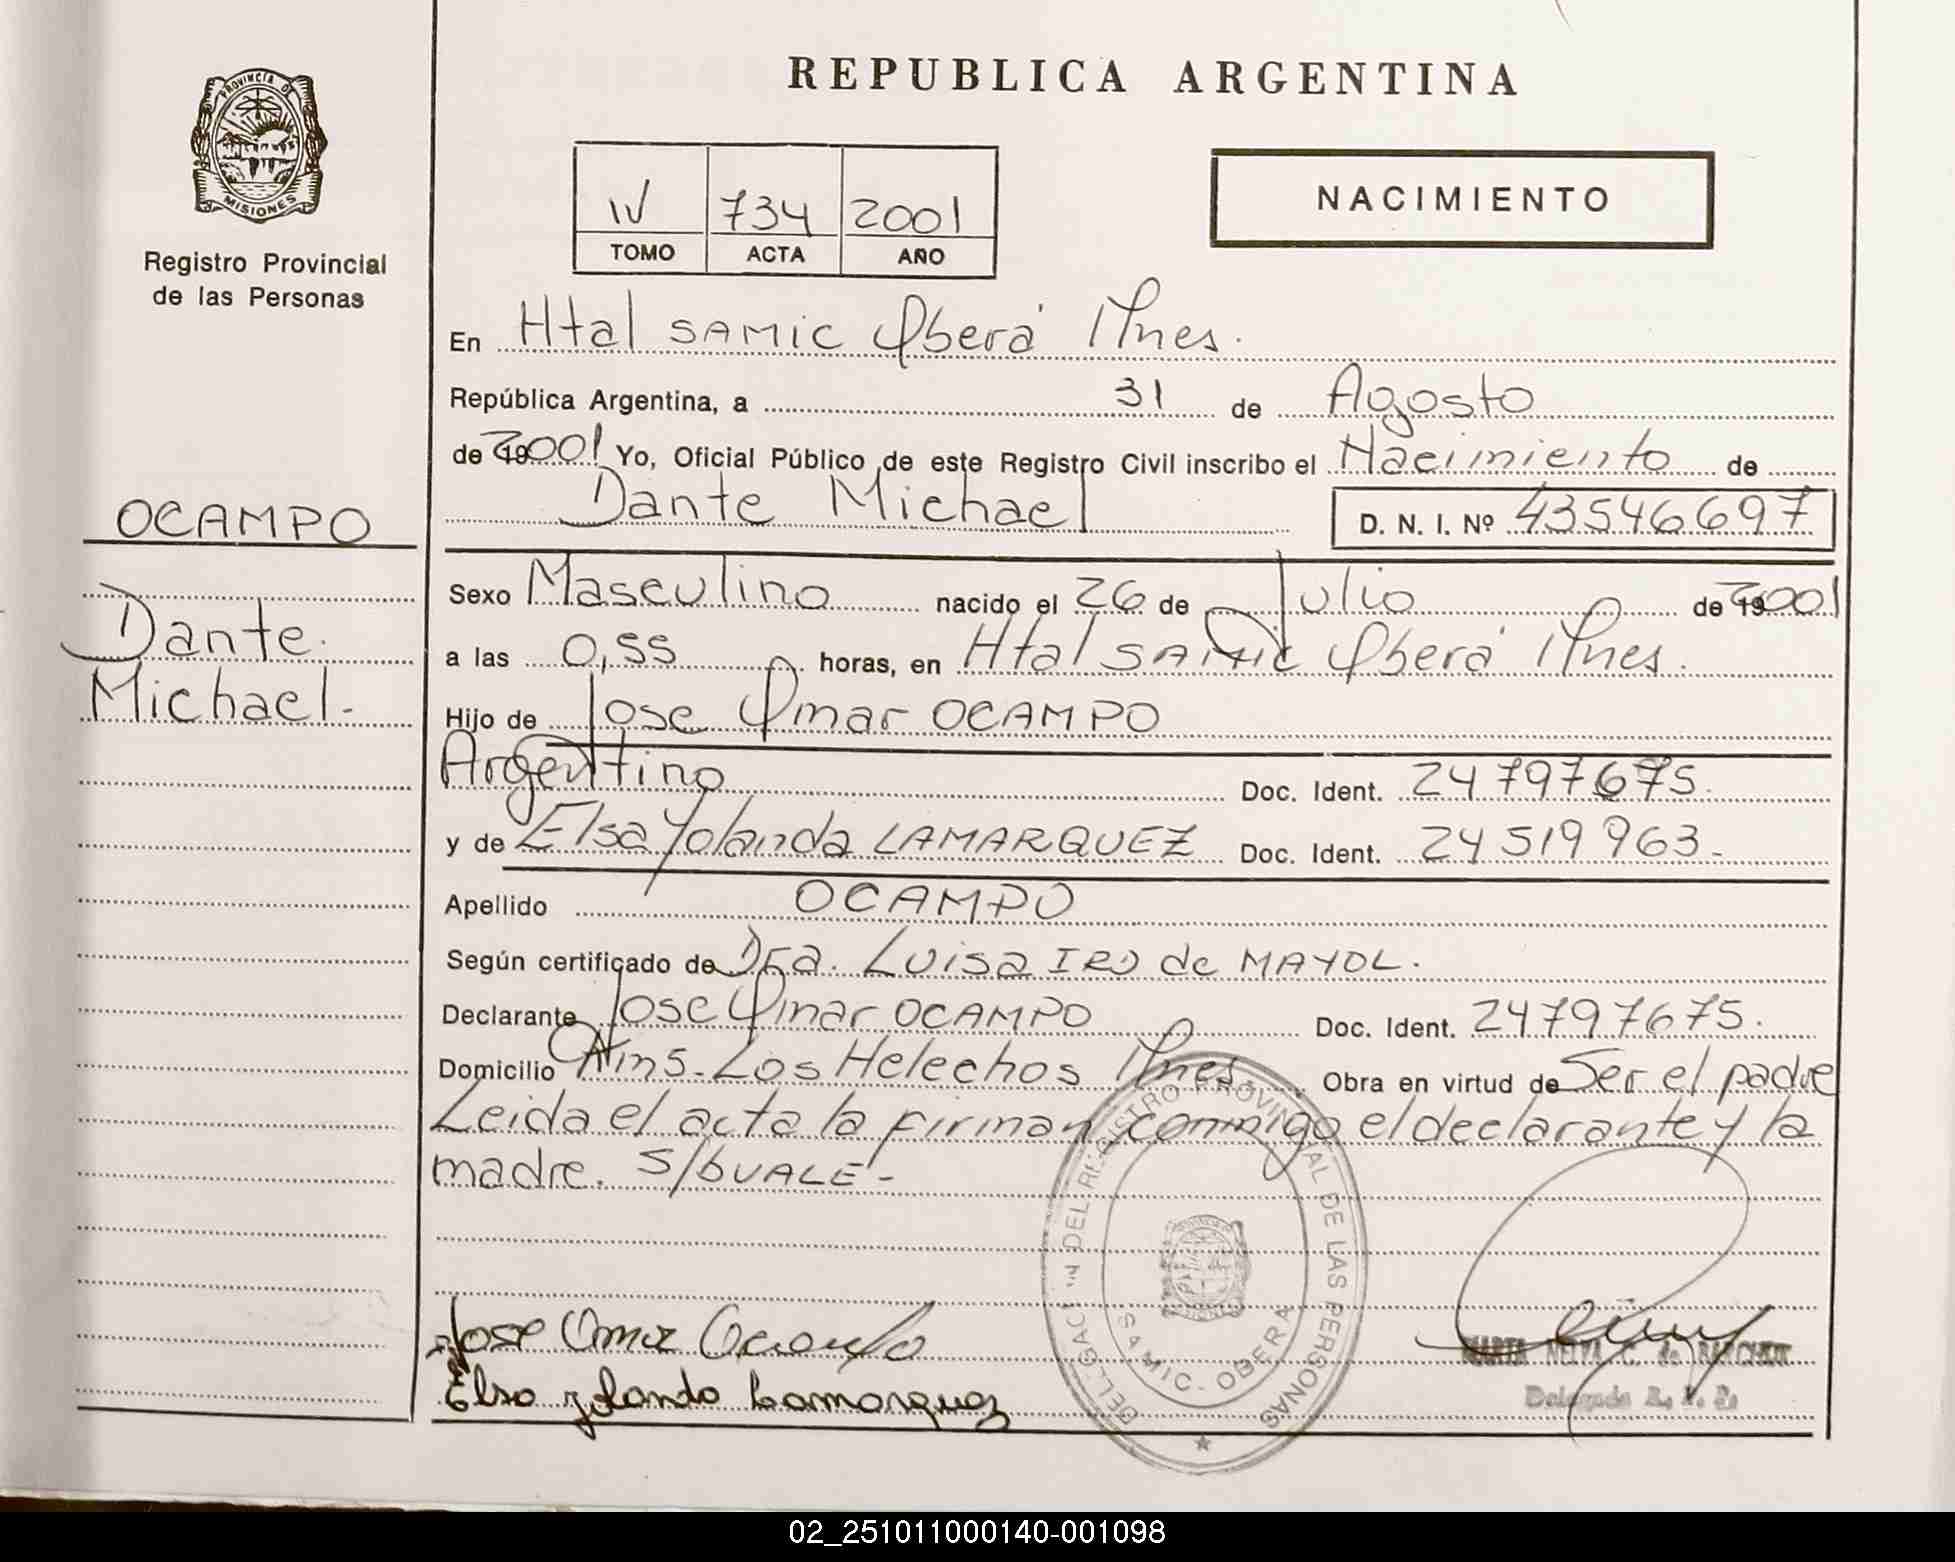 REPUBLICA ARGENTINA
PROVINCIA DE MISIONES
Registro Provincial
de las Personas
IV 734 2001
TOMO ACTA AÑO
NACIMIENTO
En Htal SAMIC Oberá Mnes.
República Argentina, a 31 de Agosto
de 2001 Yo, Oficial Público de este Registro Civil inscribo el Nacimiento de
Dante Michael D. N. I. Nº 43546697
OCAMPO
Dante
Michael.-
Sexo Masculino nacido el 26 de Julio de 2001
a las 0,55 horas, en Htal SAMIC Oberá Mnes.
Hijo de Jose Omar OCAMPO
Argentino Doc. Ident. 24797675.
y de Elsa Yolanda LAMARQUEZ Doc. Ident. 24519963.-
Apellido OCAMPO
Según certificado de Dra. Luisa de MAYOL.
Declarante Jose Omar OCAMPO Doc. Ident. 24797675.
Domicilio Los Helechos Mnes. Obra en virtud de Ser el padre
Leida el acta la firman conmigo el declarante y la
madre. S/b VALE-
Jose Omar Ocampo
Elsa Yolanda Lamarquez
DEL REGISTRO PROVINCIAL DE LAS PERSONAS
SAMIC - OBERA
Delegada R. P. P.
02_251011000140-001098